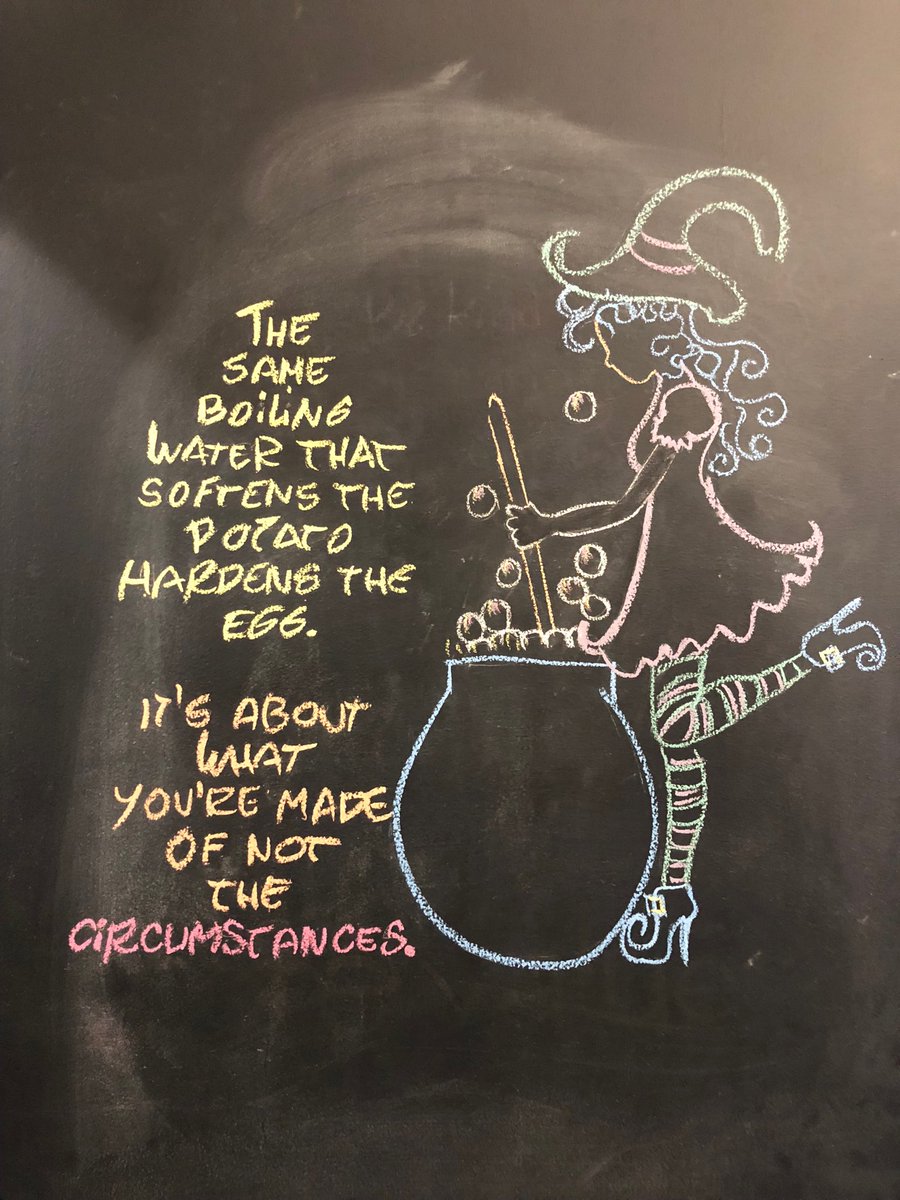 THE
SAME
BOILING
WATER THAT
SOFTENS THE
POTATO
HARDENS THE
EGG.
IT'S ABOUT
WHAT
YOU'RE MADE
OF NOT
THE
CIRCUMSTANCES.